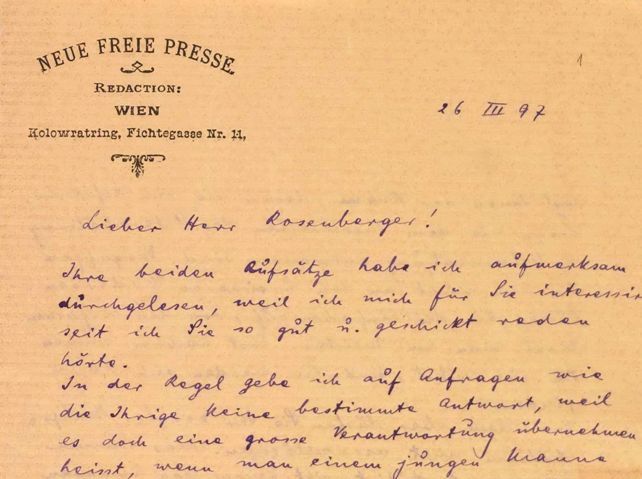 1
NEUE FREIE PRESSE.
REDACTION:
WIEN
Kolowratring, Fichtegasse Nr. 11,
26 III 97
Lieber Herr Rosenberger!
Ihre beiden Aufsätze habe ich aufmerksam
durchgelesen, weil ich mich für Sie interessir
seit ich Sie so gut u. geschickt reden
hörte.
In der Regel gebe ich auf Anfragen wie
die Ihrige keine bestimmte Antwort, weil
es doch eine grosse Verantwortung übernehmen
heisst, wenn man einem jungen Manne